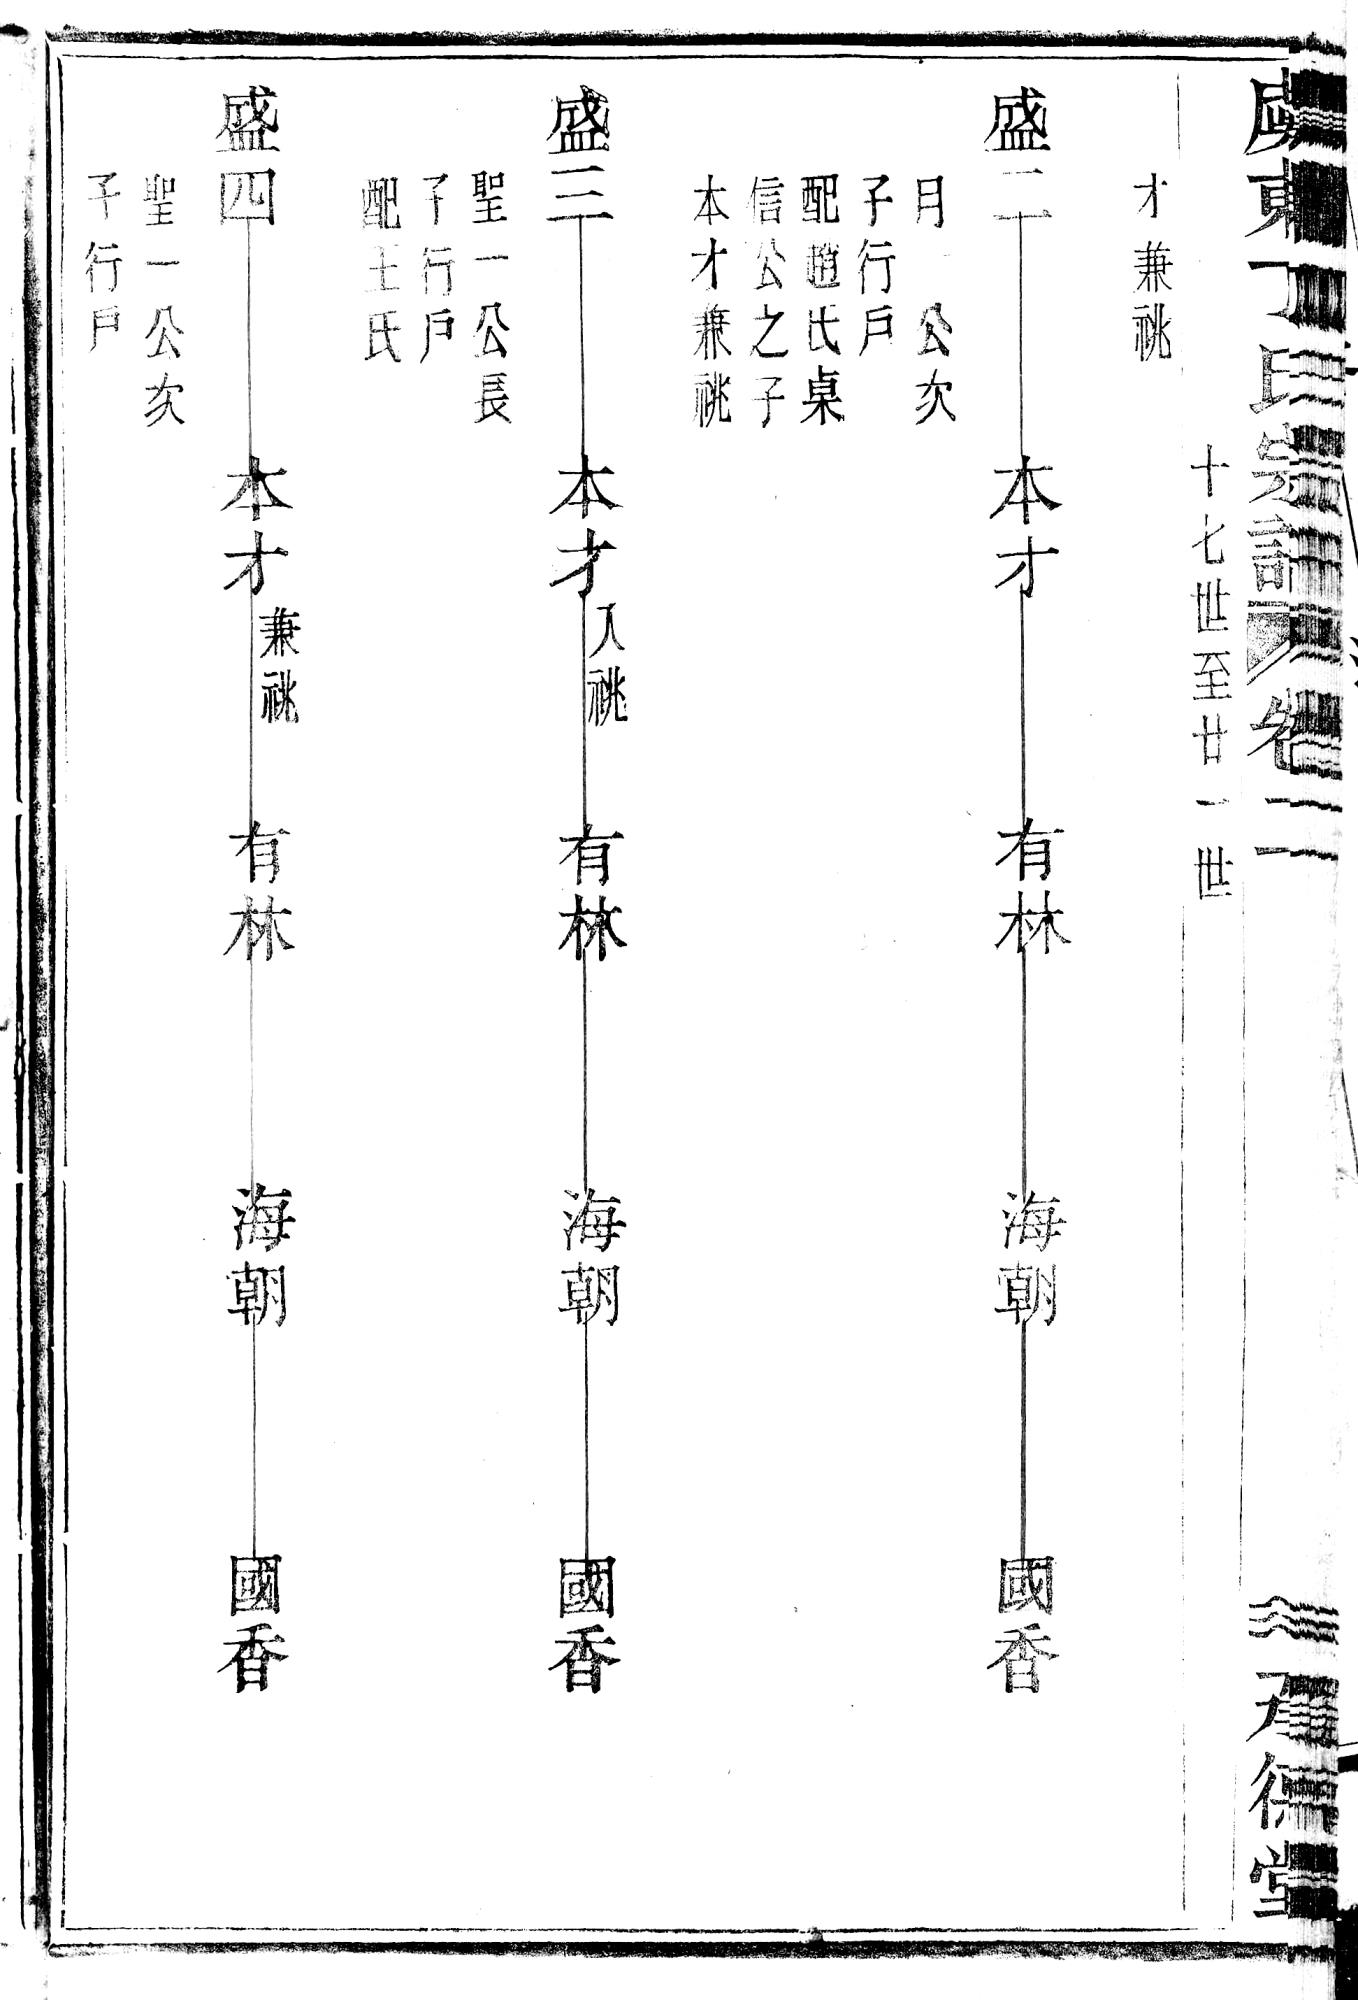 東丁氏宗譜 卷二
承德堂
十七世至廿一世
才兼祧
盛二 本才 有林 海朝 國香
月一公次
子行戶
配趙氏桌
信公之子
本才兼祧
盛三 本才 入祧 有林 海朝 國香
聖一公長
子行戶
配王氏
盛四 本才 兼祧 有林 海朝 國香
聖一公次
子行戶